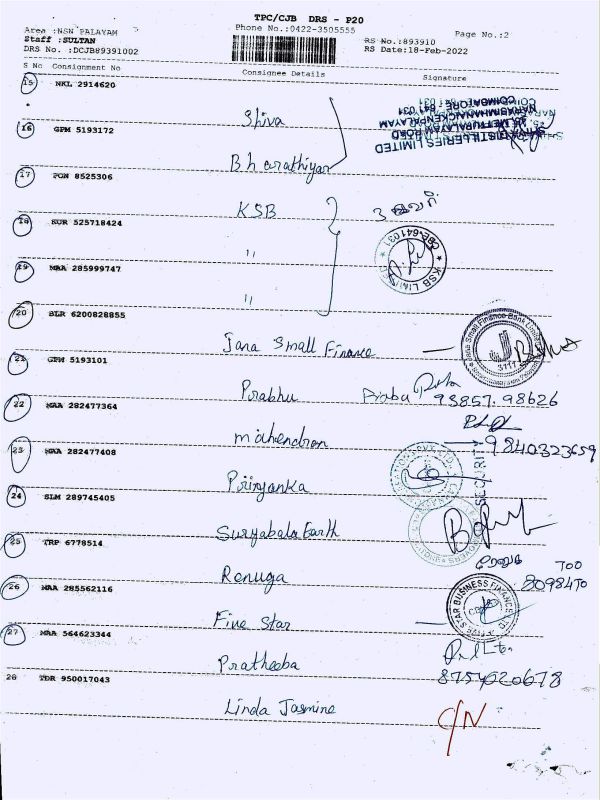 TPC/CJB DRS - P20
Area :NSN PALAYAM
Phone No.:0422-3505555
Page No.:2
Staff :SULTAN
RS No.:893910
DRS No. :DCJB89391002
RS Date:18-Feb-2022
S No Consignment No Consignee Details Signature
15 NKL 2914620
Shiva
SHIVA DISTILLERIES LIMITED
METTUPALAYAM ROAD
NARASIMHANAICKENPALAYAM
COIMBATORE 641 031
16 GPM 5193172
Bharathiyar
17 PON 8525306
KSB
18 SUR 525718424
"
KSB LIMITED * CBE-641031 *
19 MAA 285999747
"
20 BLR 6200828855
Jana Small Finance
Jana Small Finance Bank Limited
J
21 GPM 5193101
Prabhu
93857.98626
22 MAA 282477364
Mahendran
9840323659
23 MAA 282477408
Priyanka
SECURITY
24 SLM 289745405
Suryabala Earth
25 TRP 6778514
Renuga
26 MAA 285562116
Five Star
FIVE STAR BUSINESS FINANCE
27 MAA 564623344
Pratheeba
8754020678
28 TDR 950017043
Linda Jasmine
C/N